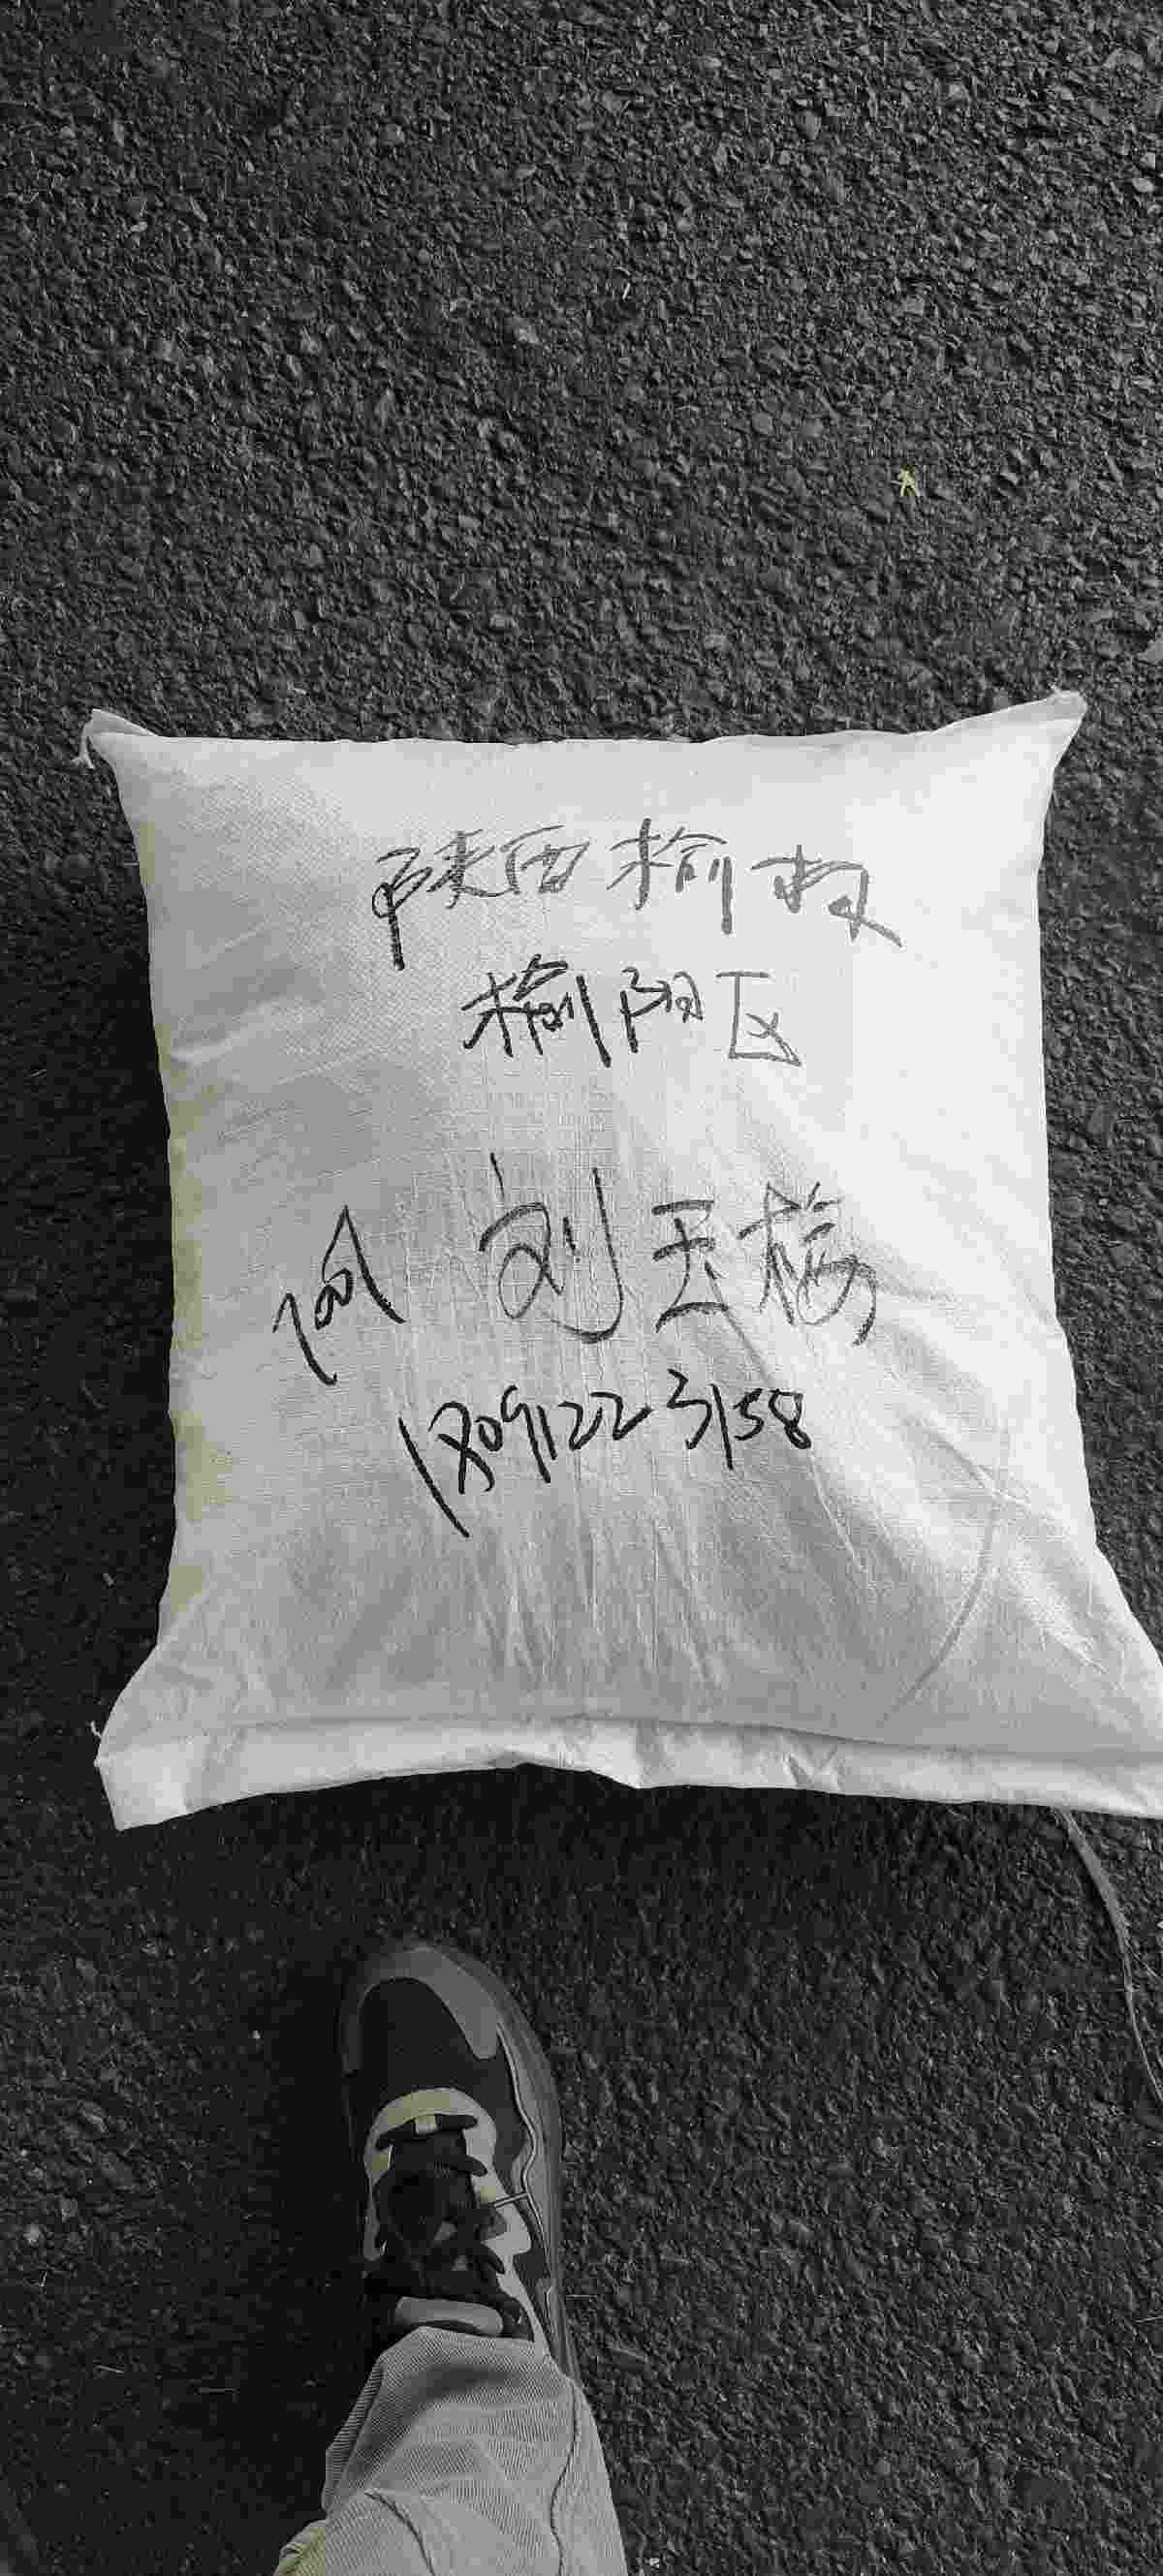 陕西榆林
榆阳区
刘玉梅
18091223158